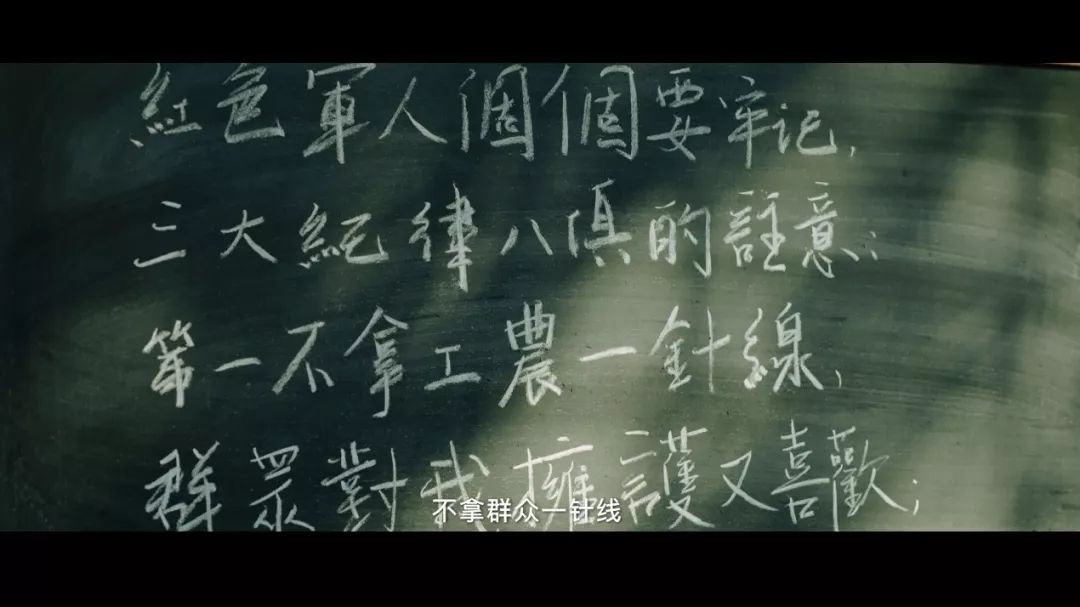 紅色軍人個個要牢记，
三大紀律八俱的註意：
第一不拿工農一針線，
群眾對我擁護又喜歡；
不拿群众一针线